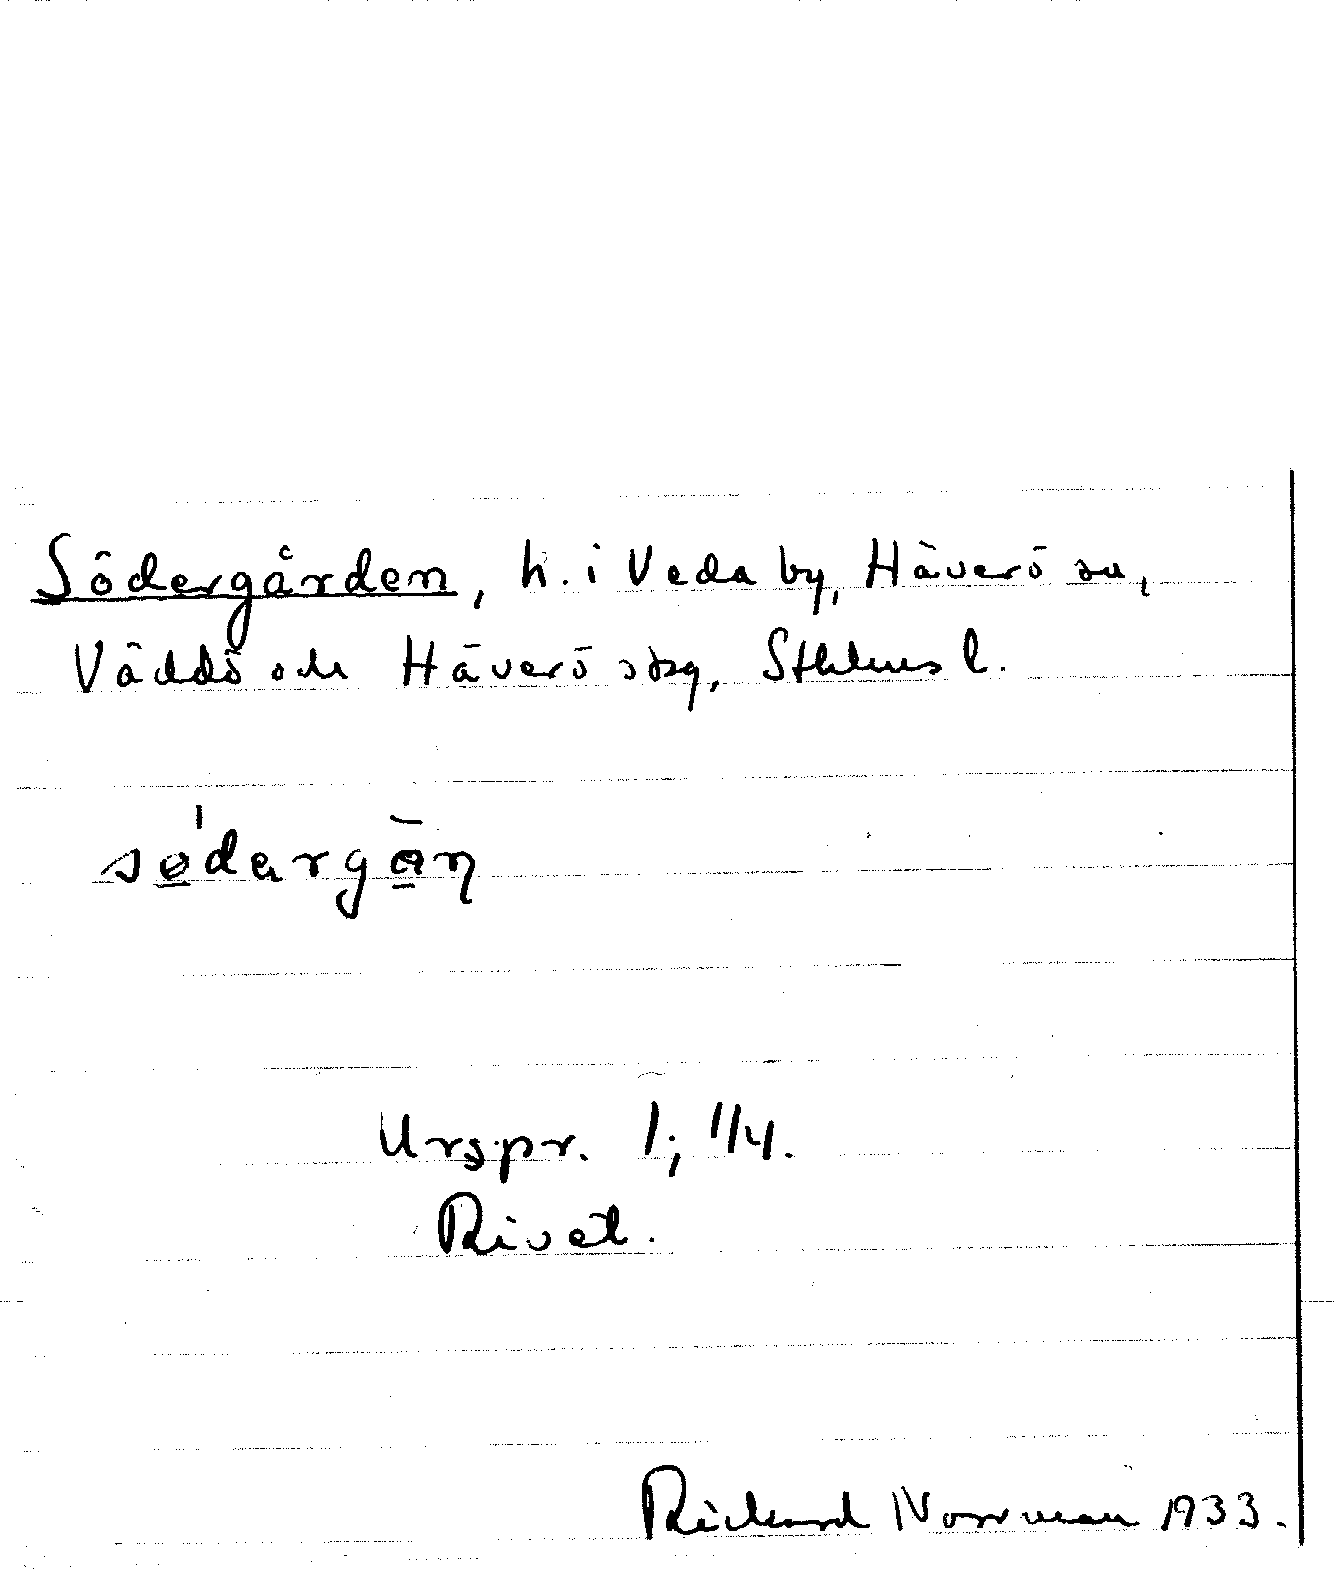 Södergården, h. i Veda by, Häverö sn,
Väddö och Häverö skg, Sthlms l.
sødərgån
Urspr. 1; 1/4.
Rivet.
Rickard Norrman 1933.